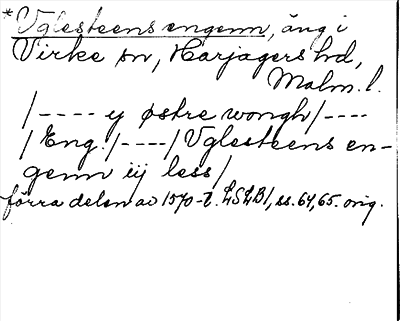 *Vglesteens engenn, äng i
Virke sn, Harjagers hd,
Malm. l.
/---- y østre wongh/----
/Eng./----/Vglesteens en-
genn iij less/
förra delen av 1570-t. LSLB1, ss. 64, 65. orig.